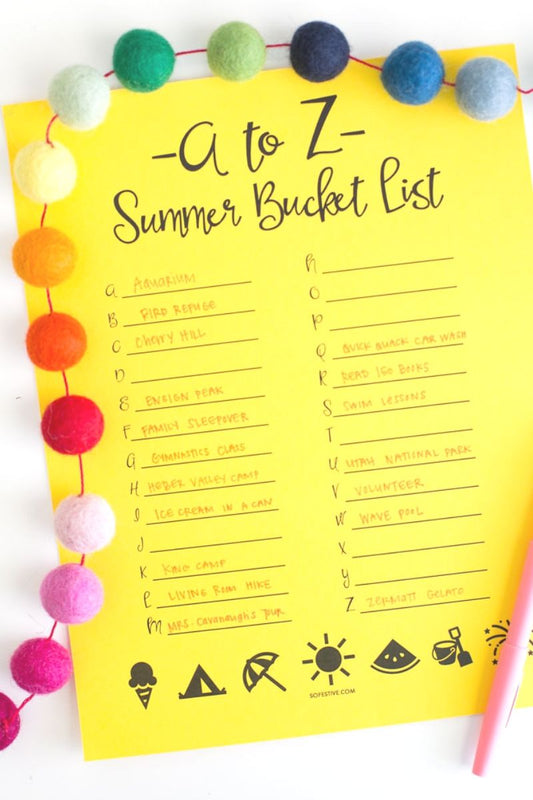 -A to Z-
Summer Bucket List
A AQUARIUM
B BIRD REFUGE
C Cherry HILL
D
E ENSIGN PEAK
F FAMILY SLEEPOVER
G GYMNASTICS CLASS
H HEBER VALLEY CAMP
I ICE CREAM IN A CAN
J
K KING CAMP
L LIVING ROOM HIKE
M MRS. Cavanaugh's TOUR
N
O
P
Q QUICK QUACK CAR WASH
R READ 150 BOOKS
S SWIM LESSONS
T
U UTAH NATIONAL PARK
V VOLUNTEER
W WAVE POOL
X
Y
Z ZERMATT GELATO
SOFESTIVE.COM